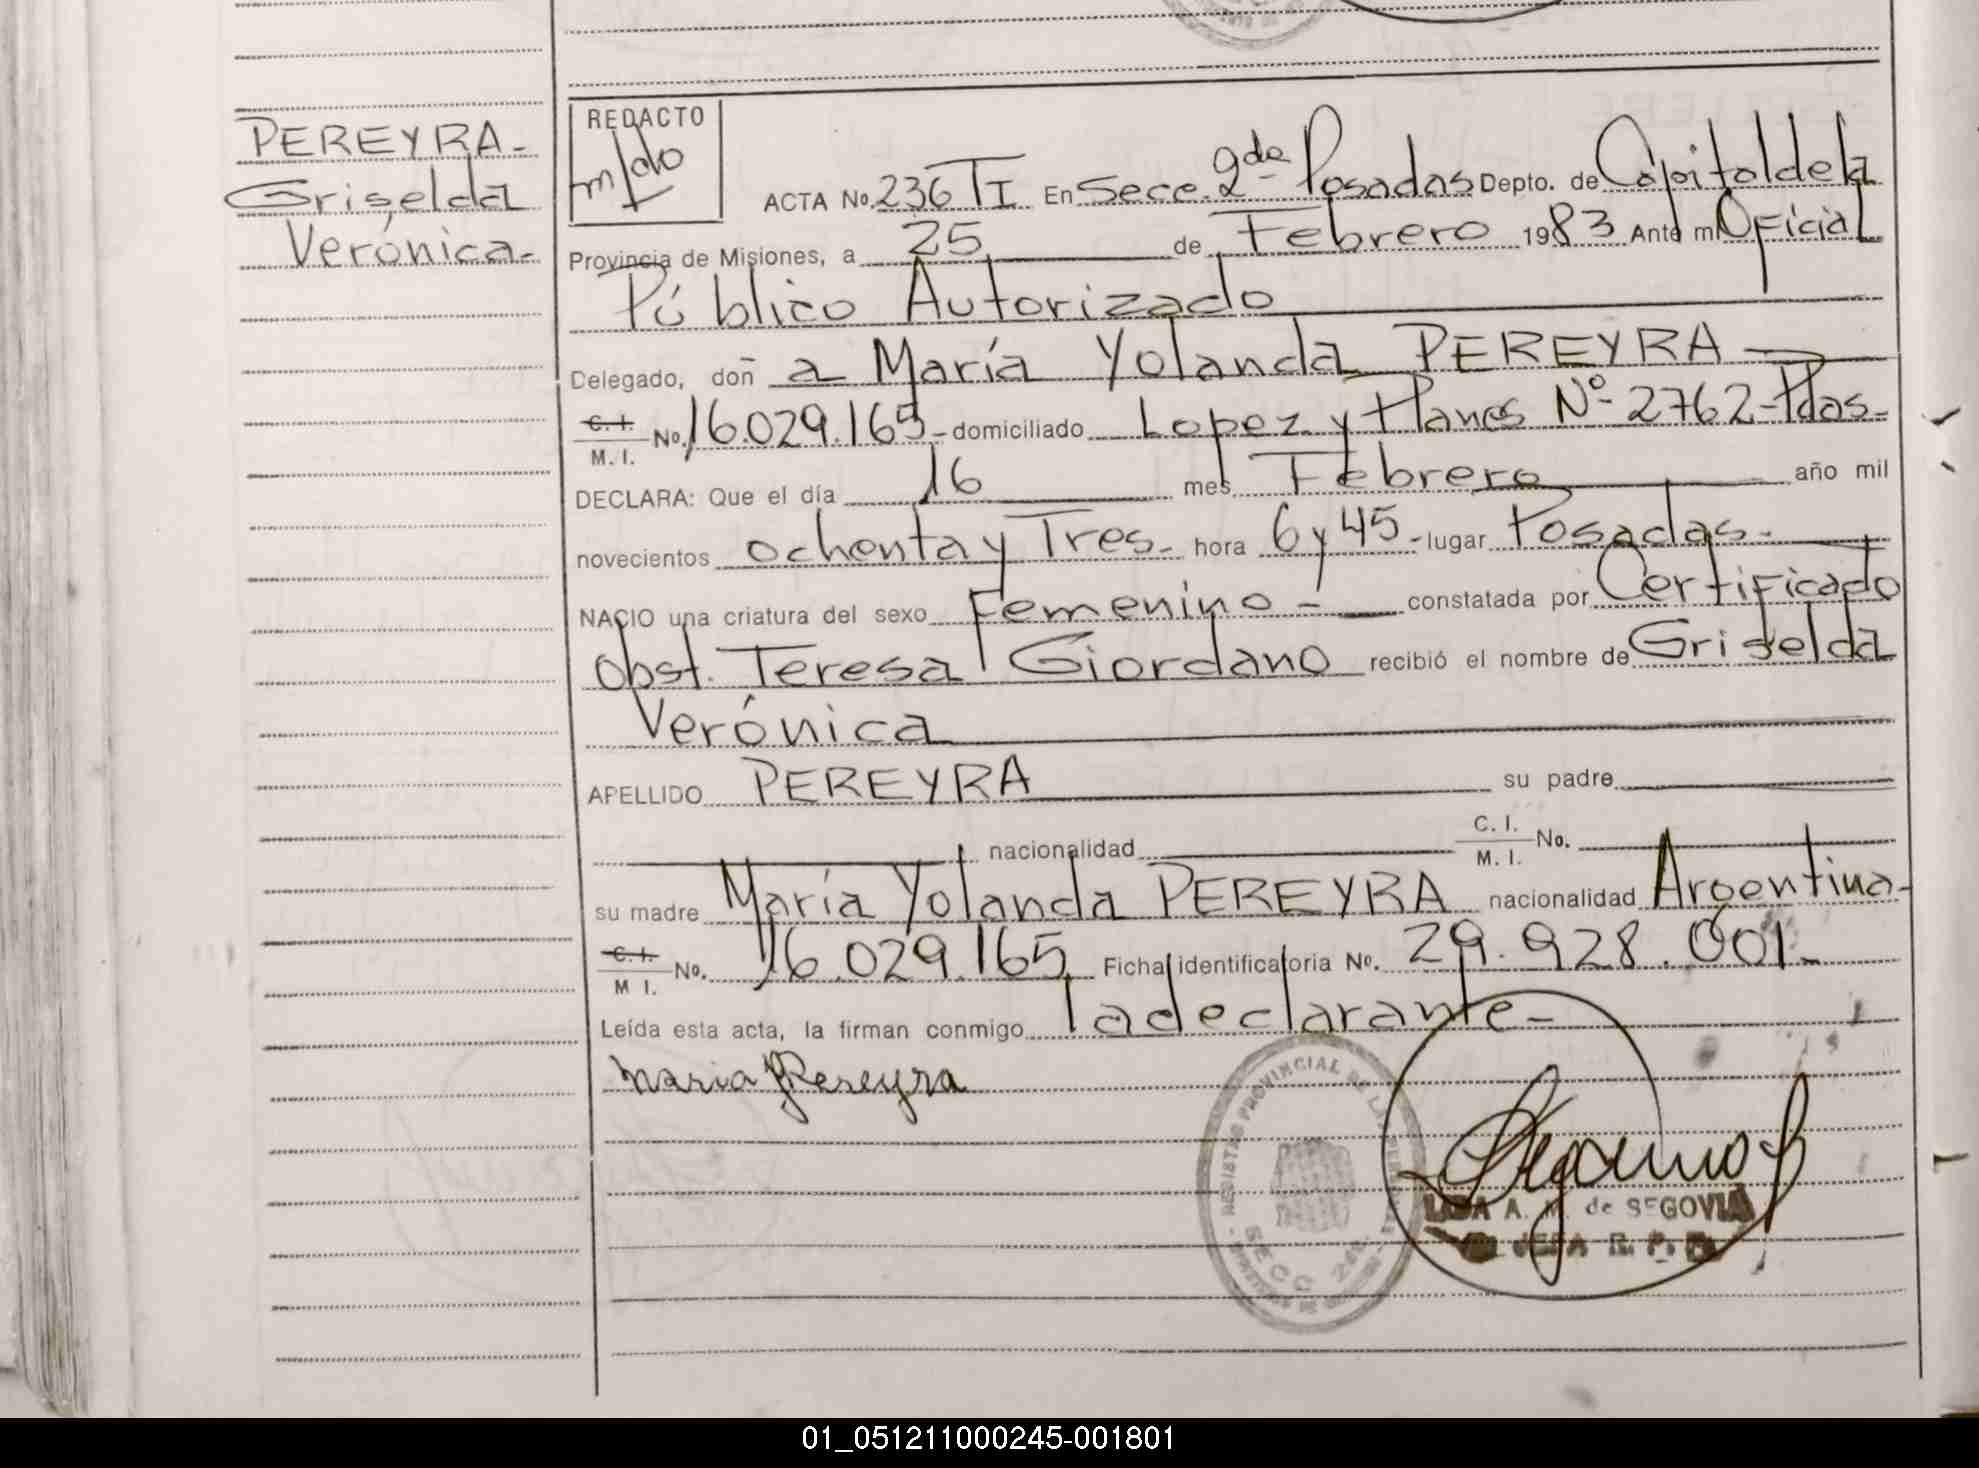 PEREYRA-
Griselda
Verónica-
REDACTO
m/do
ACTA No. 236 TI En Secc. 2da Posadas Depto. de Capital de la
Provincia de Misiones, a 25 de Febrero 1983 Ante mi Oficial
Público Autorizado
Delegado, doñ a María Yolanda PEREYRA
C. I. M. I. No. 16.029.165- domiciliado Lopez y Planes Nº 2762-Pdas-
DECLARA: Que el día 16 mes Febrero año mil
novecientos ochenta y Tres- hora 6 y 45- lugar Posadas-
NACIO una criatura del sexo Femenino- constatada por Certificado
Obst. Teresa Giordano recibió el nombre de Griselda
Verónica
APELLIDO PEREYRA su padre
nacionalidad C. I. M. I. No.
su madre María Yolanda PEREYRA nacionalidad Argentina-
C. I. M I. No. 16.029.165 Ficha identificatoria No. 29.928.001-
Leída esta acta, la firman conmigo la declarante-
maria Y Pereyra
REGISTRO PROVINCIAL DE LAS PERSONAS
SECC 2da
A. M. de SEGOVIA
JEFA R. P. P.
01_051211000245-001801